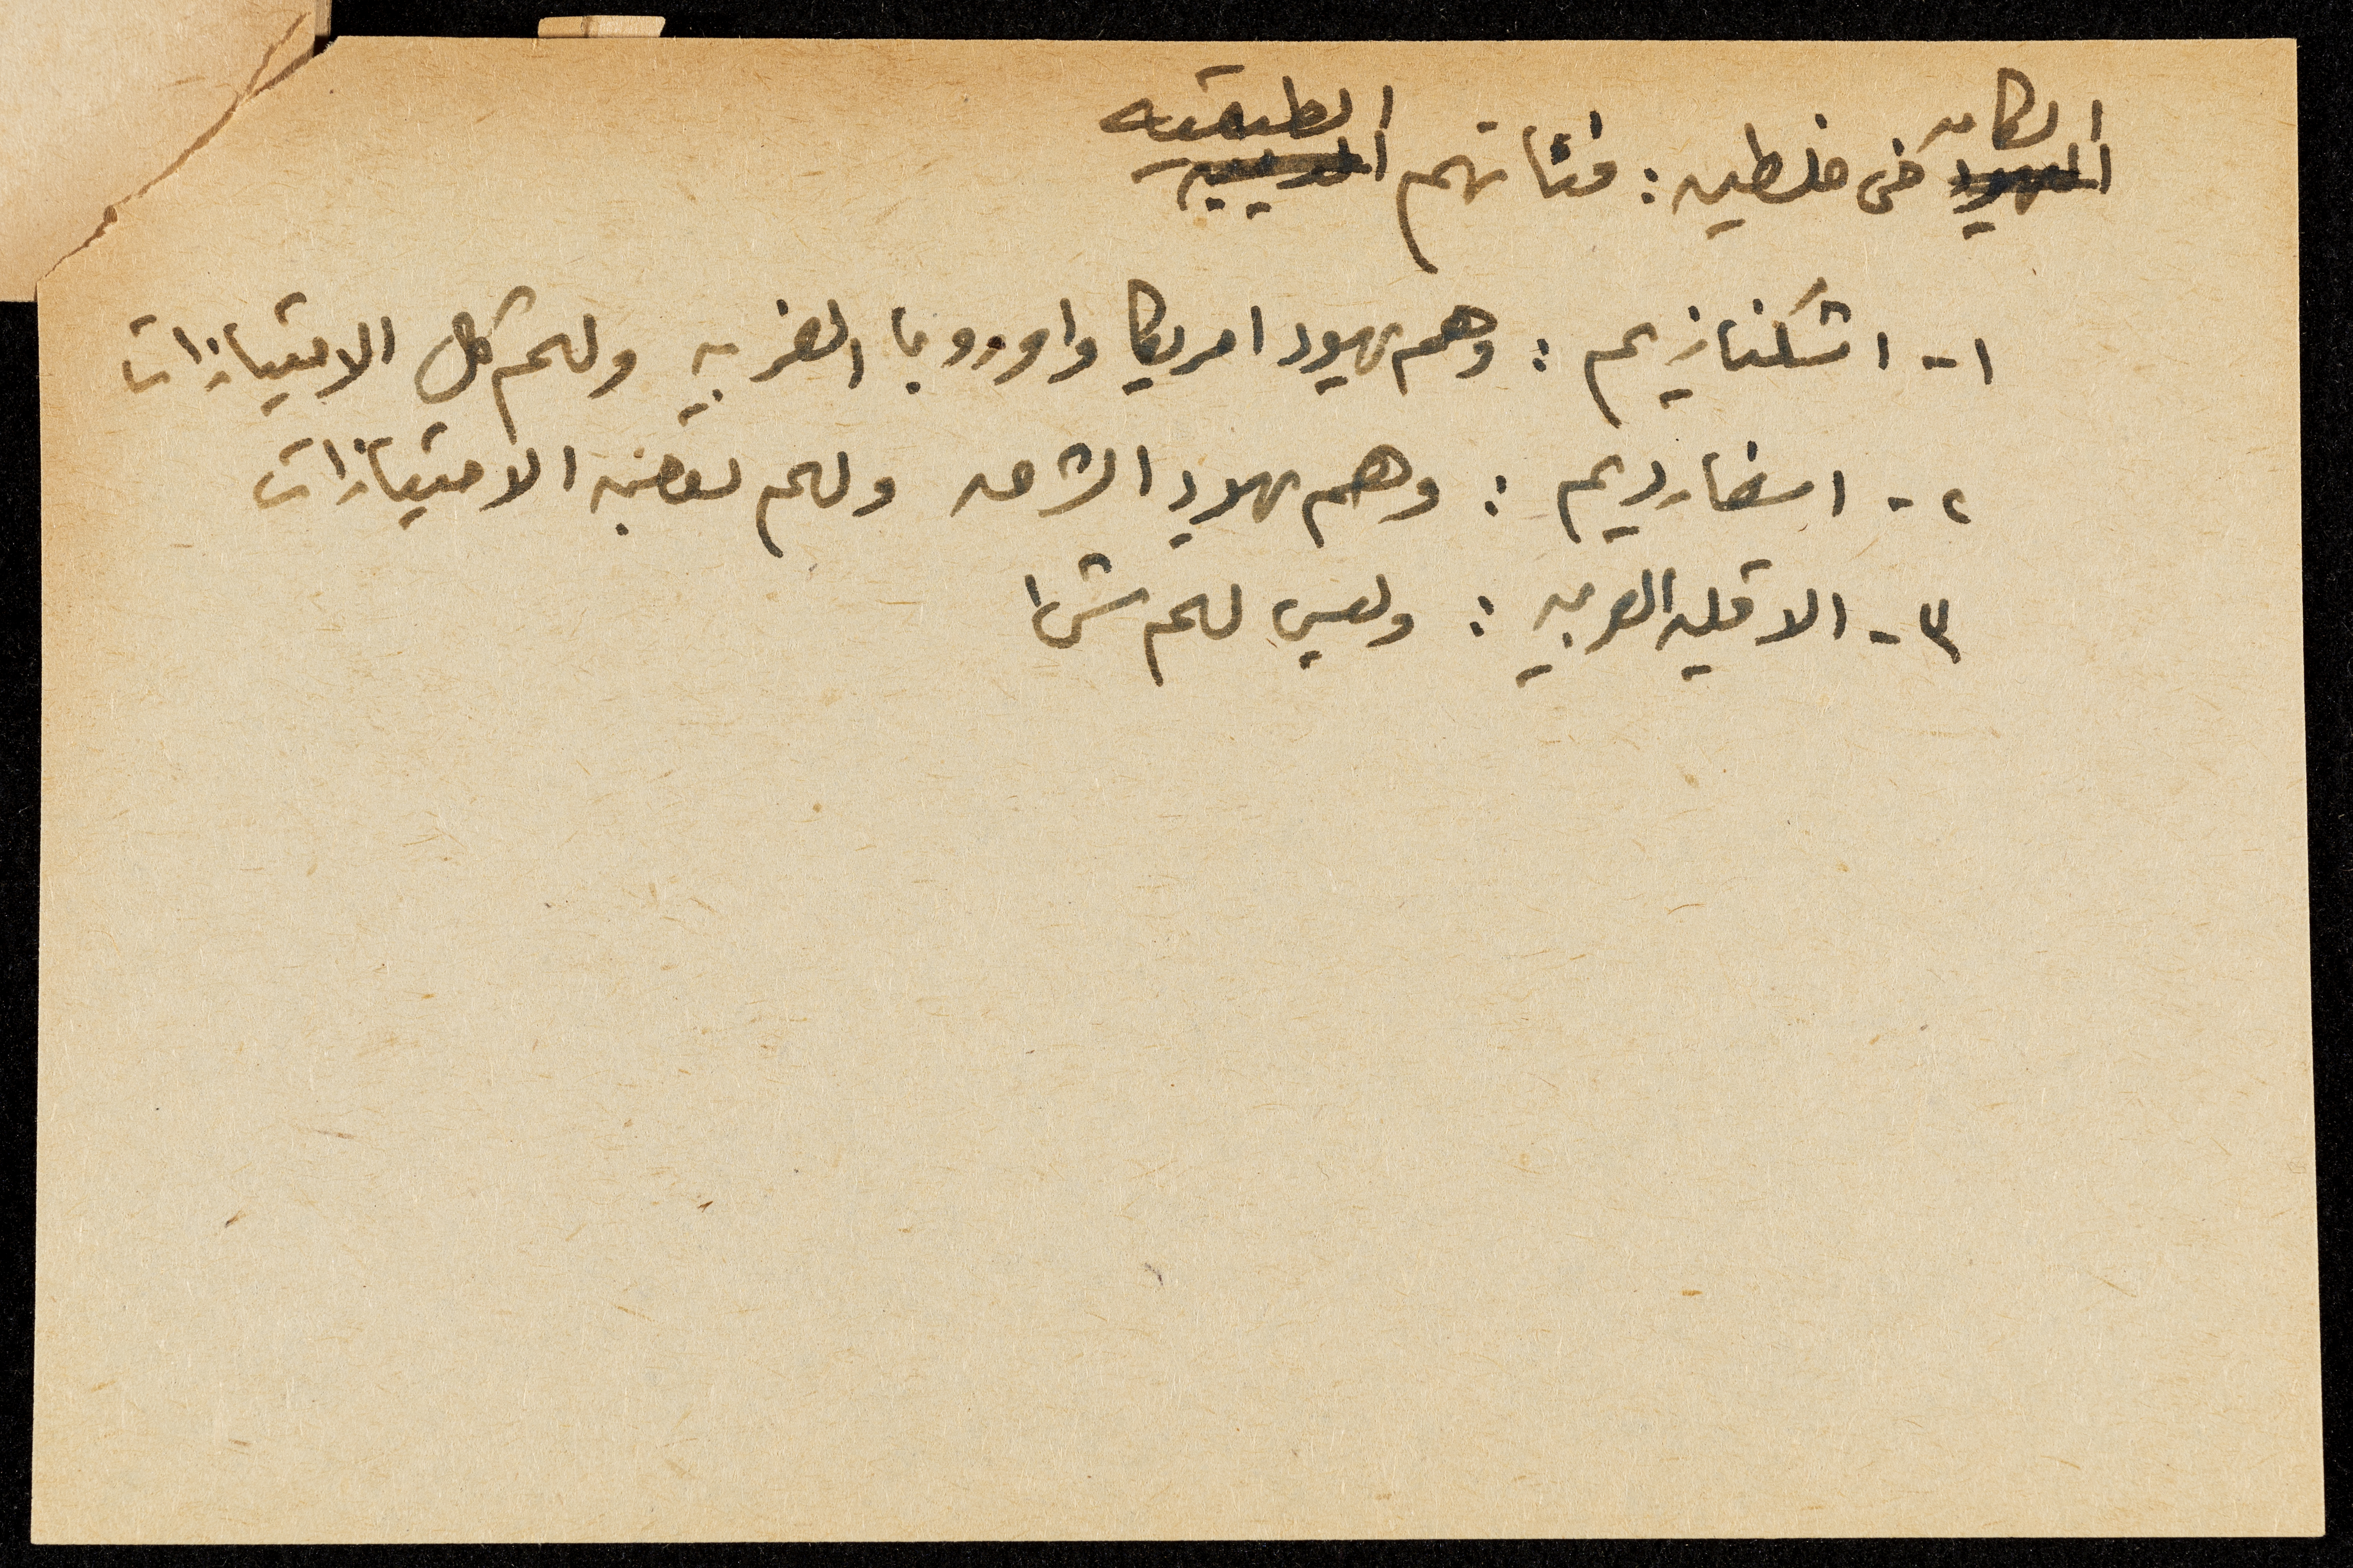 السكان في فلسطين : فئاتهم الطبقية
١- اشكنازيم : وهم يهود امريكا واوروبا الغربيه ولهم كل الامتيازات
٢- اسفارديم : وهم يهود الشرق ولهم بعض الامتيازات
٣- الاقليه العربيه : وليس لهم شيئا